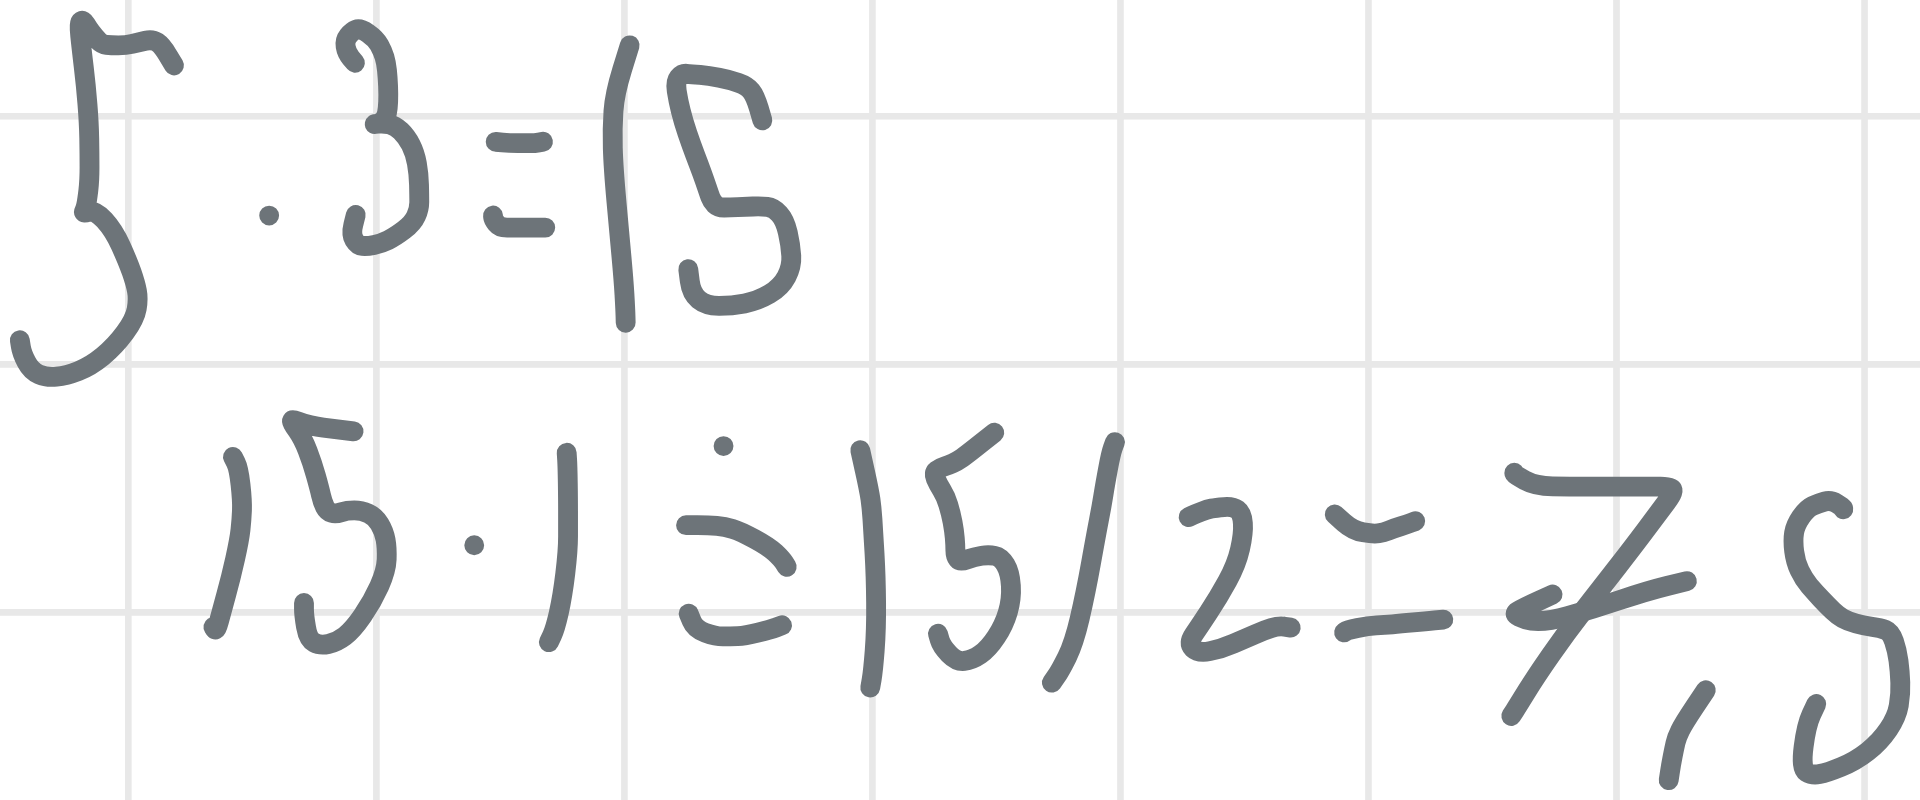 5 · 3 = 15
15 · 1 = 15/2 = 7,5